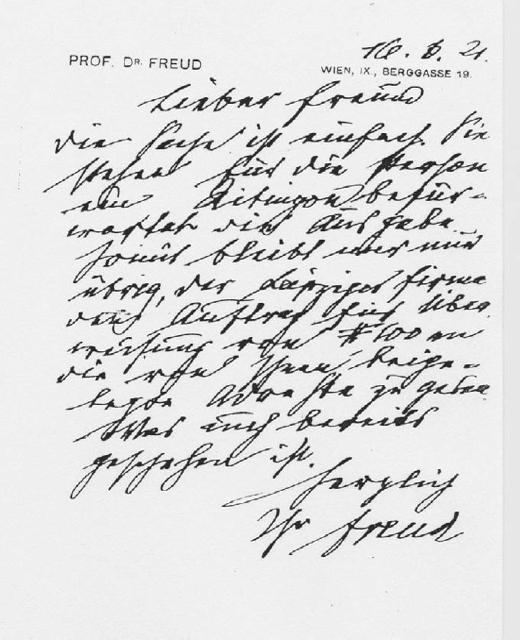 PROF. DR. FREUD
16. 6. 21.
WIEN, IX., BERGGASSE 19.
Lieber Freund
Die Sache ist einfach. Sie
stehen für die Person
ein Eitingon befür-
wortet die Ausgabe.
Somit bleibt mir nur
übrig, der Leipziger Firma
den Auftrag für Über
weisung von $ 100 an
die von Ihnen beige-
legte Adresse zu geben
Was auch bereits
geschehen ist.
Herzlich
Ihr Freud